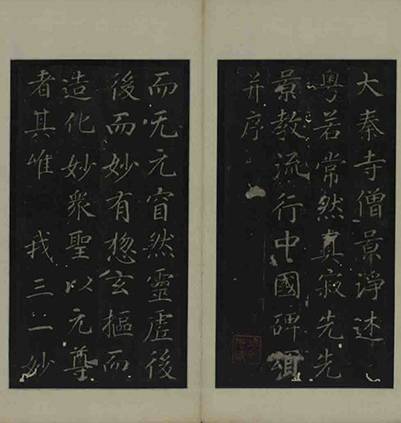 大秦寺僧景淨述
粵若常然真寂先先
景教流行中國碑頌
并序
而无元窅然靈虛後
後而妙有惣玄樞而
造化妙衆聖以元尊
者其唯 我三一妙